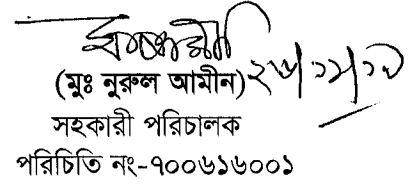 (মুঃ নুরুল আমীন)
সহকারী পরিচালক
পরিচিতি নং-৭০০৬১৬০০১